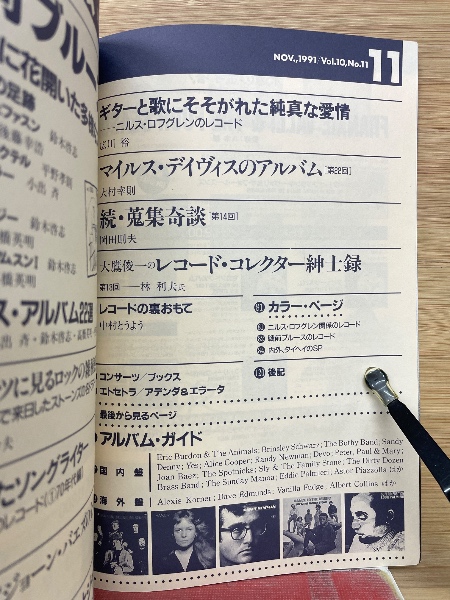 NOV.,1991/Vol.10,No.11 11
ギターと歌にそそがれた純真な愛情
ニルス・ロフグレンのレコード
マイルス・デイヴィスのアルバム[第22回]
大村幸則
続・蒐集奇談[第14回]
岡田則夫
大鷹俊一のレコード・コレクター紳士録
第13回——林 利夫氏
レコードの裏おもて
中村とうよう
コンサーツ/ブックス
エトセトラ/アデンダ&エラータ
最後から見るページ
カラー・ページ
ニルス・ロフグレン関係のレコード
戦前ブルースのレコード
内外、タイヘイのSP
後記
アルバム・ガイド
国内盤
Eric Burdon & The Animals; Brinsley Schwarz; The Bothy Band; Sandy
Denny; Yes; Alice Cooper; Randy Newman; Devo; Peter, Paul & Mary;
Joan Baez; The Spotnicks; Sly & The Family Stone; The Dirty Dozen
Brass Band; The Sunday Manna; Eddie Palmieri; Astor Piazzolla ほか
海外盤
Alexis Korner; Dave Edmunds; Vanilla Fudge; Albert Collins ほか
ブルー
に花開いた多
の足跡
鈴木啓志
平野孝則
クテル
小出 斉
鈴木啓志
ス・アルバム22選
ツに見るロックの
で来日したストーンズの
ソングライター
ジョーン・バエズ